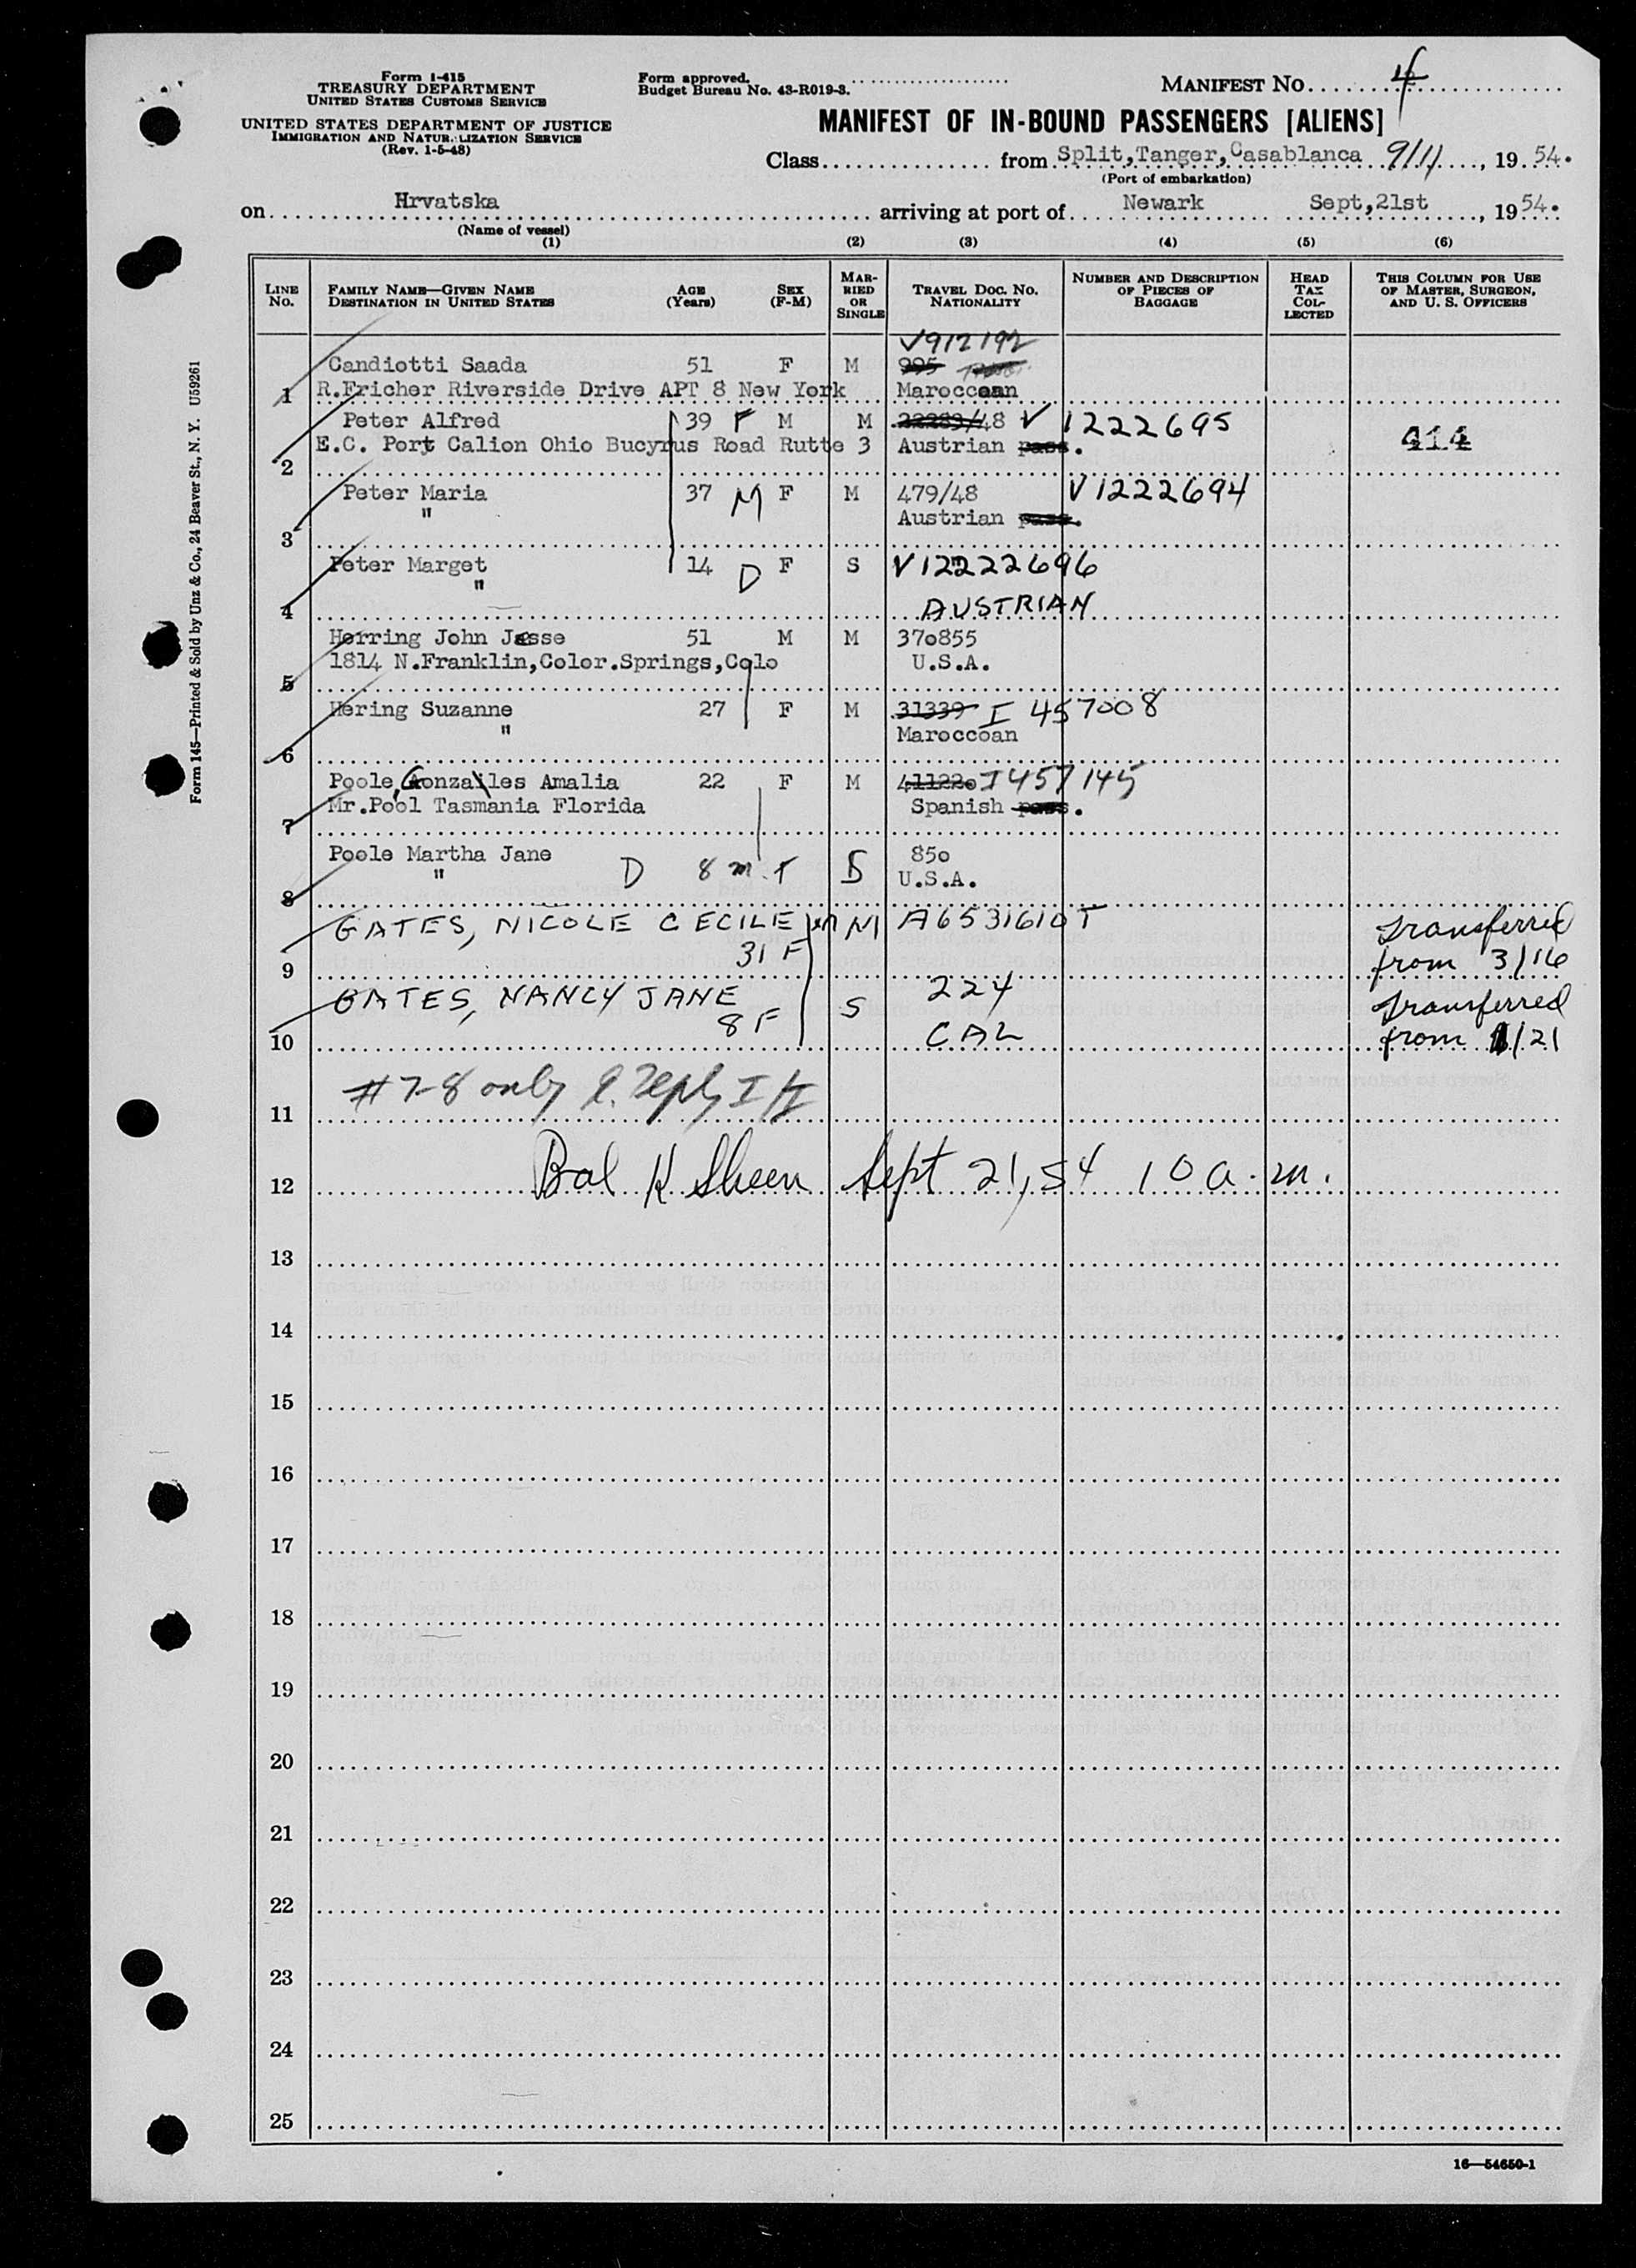 Form I-415
TREASURY DEPARTMENT
UNITED STATES CUSTOMS SERVICE
UNITED STATES DEPARTMENT OF JUSTICE
IMMIGRATION AND NATURALIZATION SERVICE
(Rev. 1-5-48)
Form approved.
Budget Bureau No. 43-R019-3.
MANIFEST NO. 4
MANIFEST OF IN-BOUND PASSENGERS [ALIENS]
Class from Split,Tanger,Casablanca 9/11, 19 54.
(Port of embarkation)
on Hrvatska arriving at port of Newark Sept,21st, 19 54.
(Name of vessel)
(1) (2) (3) (4) (5) (6)
LINE NO. FAMILY NAME—GIVEN NAME DESTINATION IN UNITED STATES AGE (Years) SEX (F-M) MARRIED OR SINGLE TRAVEL DOC. NO. NATIONALITY NUMBER AND DESCRIPTION OF PIECES OF BAGGAGE HEAD TAX COLLECTED THIS COLUMN FOR USE OF MASTER, SURGEON, AND U. S. OFFICERS
V912192
Candiotti Saada 51 F M 995
1 R.Fricher Riverside Drive APT 8 New York Maroccoan
Peter Alfred 39 F M M 32283/48 V 1222695
E.C. Port Calion Ohio Bucyrus Road Rutte 3 Austrian pass. 414
2
Peter Maria 37 M F M 479/48 V1222694
" Austrian pass.
3
Peter Marget 14 D F S V12222696
"
4 AUSTRIAN
Herring John Jesse 51 M M 370855
1814 N.Franklin,Color.Springs,Colo U.S.A.
5
Hering Suzanne 27 F M 31339 I 457008
" Maroccoan
6
Poole,Gonzalles Amalia 22 F M 411220 I457145
Mr.Pool Tasmania Florida Spanish pass.
7
Poole Martha Jane 850
" D 8 m. F S U.S.A.
8
GATES, NICOLE CECILE M M A6531610T Transferred
9 31 F from 3/16
GATES, NANCY JANE S 224 Transferred
10 8 F CAL from 1/21
#7-8 only
11
12 Sept 21, 54 10 a.m.
13
14
15
16
17
18
19
20
21
22
23
24
25
16—54650-1
Form 145—Printed & Sold by Unz & Co., 24 Beaver St., N. Y. U59261